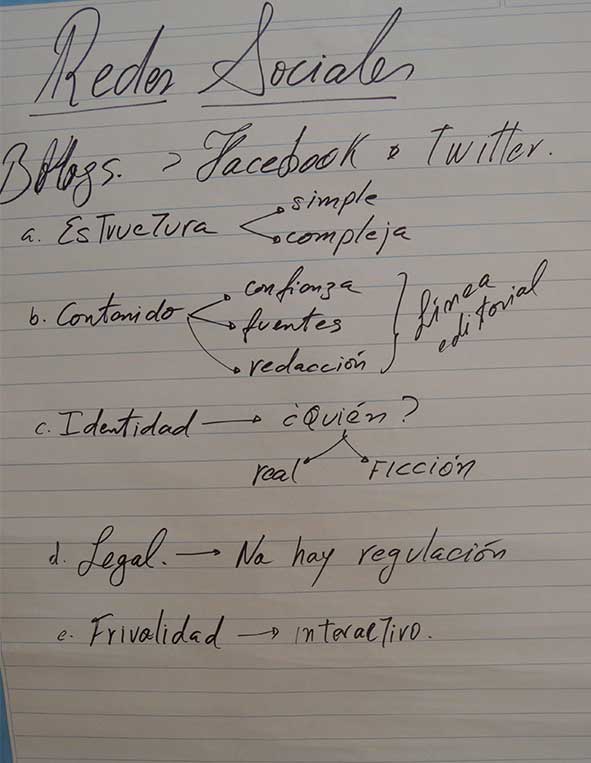 Redes Sociales
Bologs. > Facebook Twitter.
a. Estructura simple
compleja
b. Contenido confianza
fuentes
redacción
Línea
editorial
c. Identidad → ¿Quién?
real Ficción
d. Legal. → No hay regulación
e. Frivalidad → interactivo.